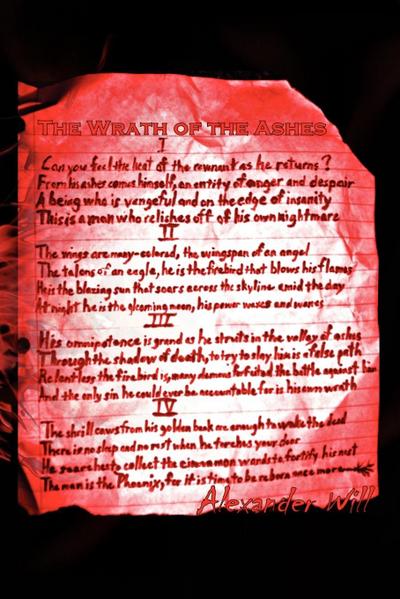 THE WRATH OF THE ASHES
I
Can you feel the heat of the revenant as he returns?
From his ashes comes himself, an entity of anger and despair
A being who is vengeful and on the edge of insanity
This is a man who relishes off of his own nightmare
II
The wings are many-colored, the wingspan of an angel
The talons of an eagle, he is the firebird that blows his flames
He is the blazing sun that soars across the skyline amid the day
At night he is the gleaming moon, his power waxes and wanes
III
His omnipotence is grand as he struts in the valley of ashes
Through the shadow of death, to try to slay him is a false path
Relentless the firebird is, many demons forfeited the battle against him
And the only sin he could ever be accountable for is his own wrath
IV
The shrill caws from his golden beak are enough to wake the dead
There is no sleep and no rest when he torches your door
He soars to collect the cinnamon wands to fortify his nest
The man is the Phoenix, for it is time to be reborn once more
Alexander Will